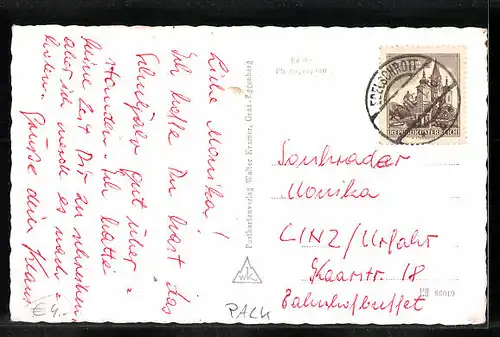 Liebe Monika!
Ich hoffe Du hast das
Schuljahr gut über-
standen. Ich hatte
keine Zeit Dir zu schreiben,
aber ich werde es nach-
holen. Grüße dein Klaus
€ 4.-
Postkartenverlag Walter Kramer, Graz-Eggenberg
WK
PACK
Echte
Photographie
EDELSCHROTT
REPUBLIK ÖSTERREICH
Sonnrader
Monika
LINZ/Urfahr
Kaarstr. 18
Bahnhofbuffet
86019